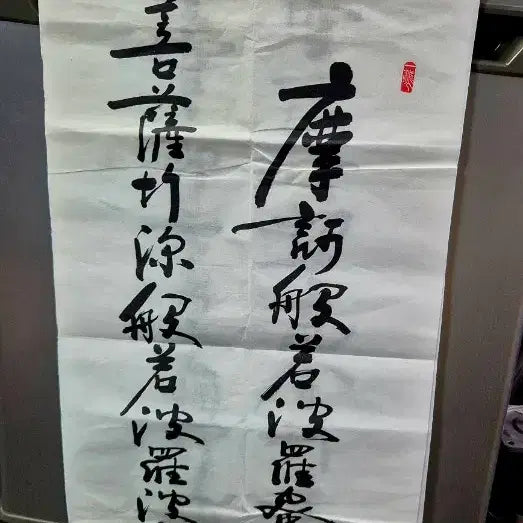 摩訶般若波羅蜜
菩薩行深般若波羅波